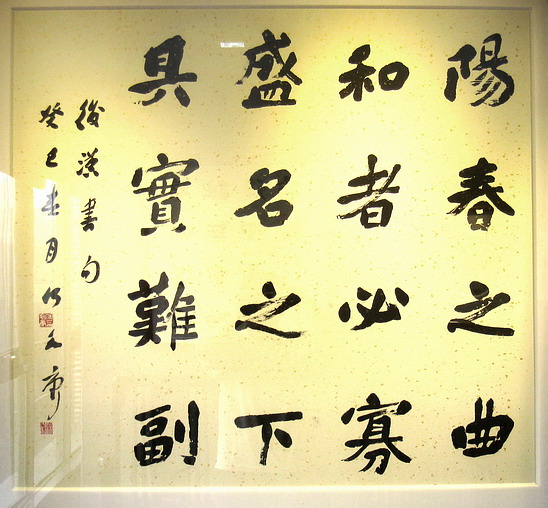 陽春之曲
和者必寡
盛名之下
具實難副
後漢書句
癸巳春月